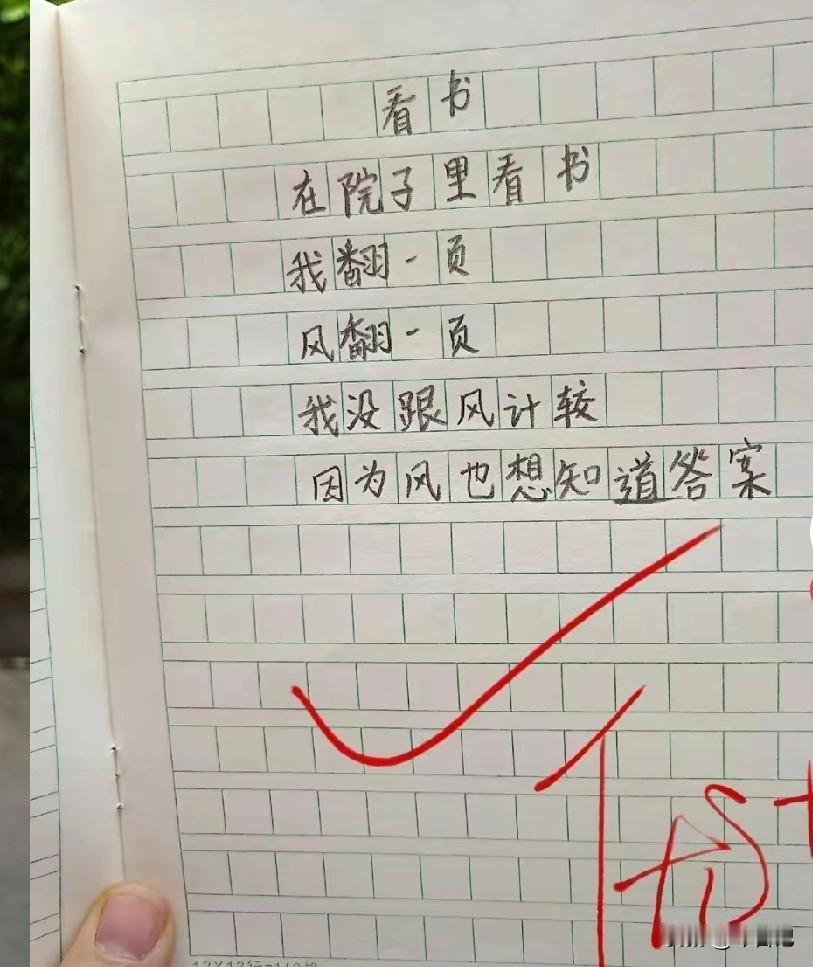 看书
在院子里看书
我翻一页
风翻一页
我没跟风计较
因为风也想知道答案